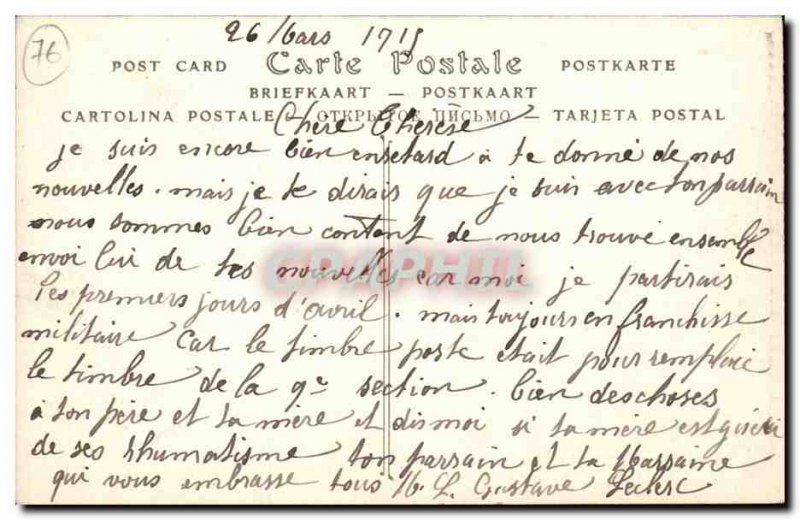 26 Mars 191
76
Carte Postale
POST CARD POSTKARTE
BRIEFKAART — POSTKAART
CARTOLINA POSTALE — ОТКРЫТОЕ ПИСЬМО — TARJETA POSTAL
Chère Thérèse
je suis encore bien en retard à te donné de nos
nouvelles. mais je te dirais que je suis avec ton parrain
nous sommes bien content de nous trouvé ensemble
envoi lui de tes nouvelles car moi je partirais
les premiers jours d'avril. mais toujours en franchisse
militaire car le timbre poste était pour remplacé
le timbre de la 9e section. bien des choses
à ton père et ta mère et dis moi si ta mère est
de ses rhumatisme ton parrain et ta Marraine
qui vous embrasse tous M. L. Gustave Leclerc
CRAPHIL